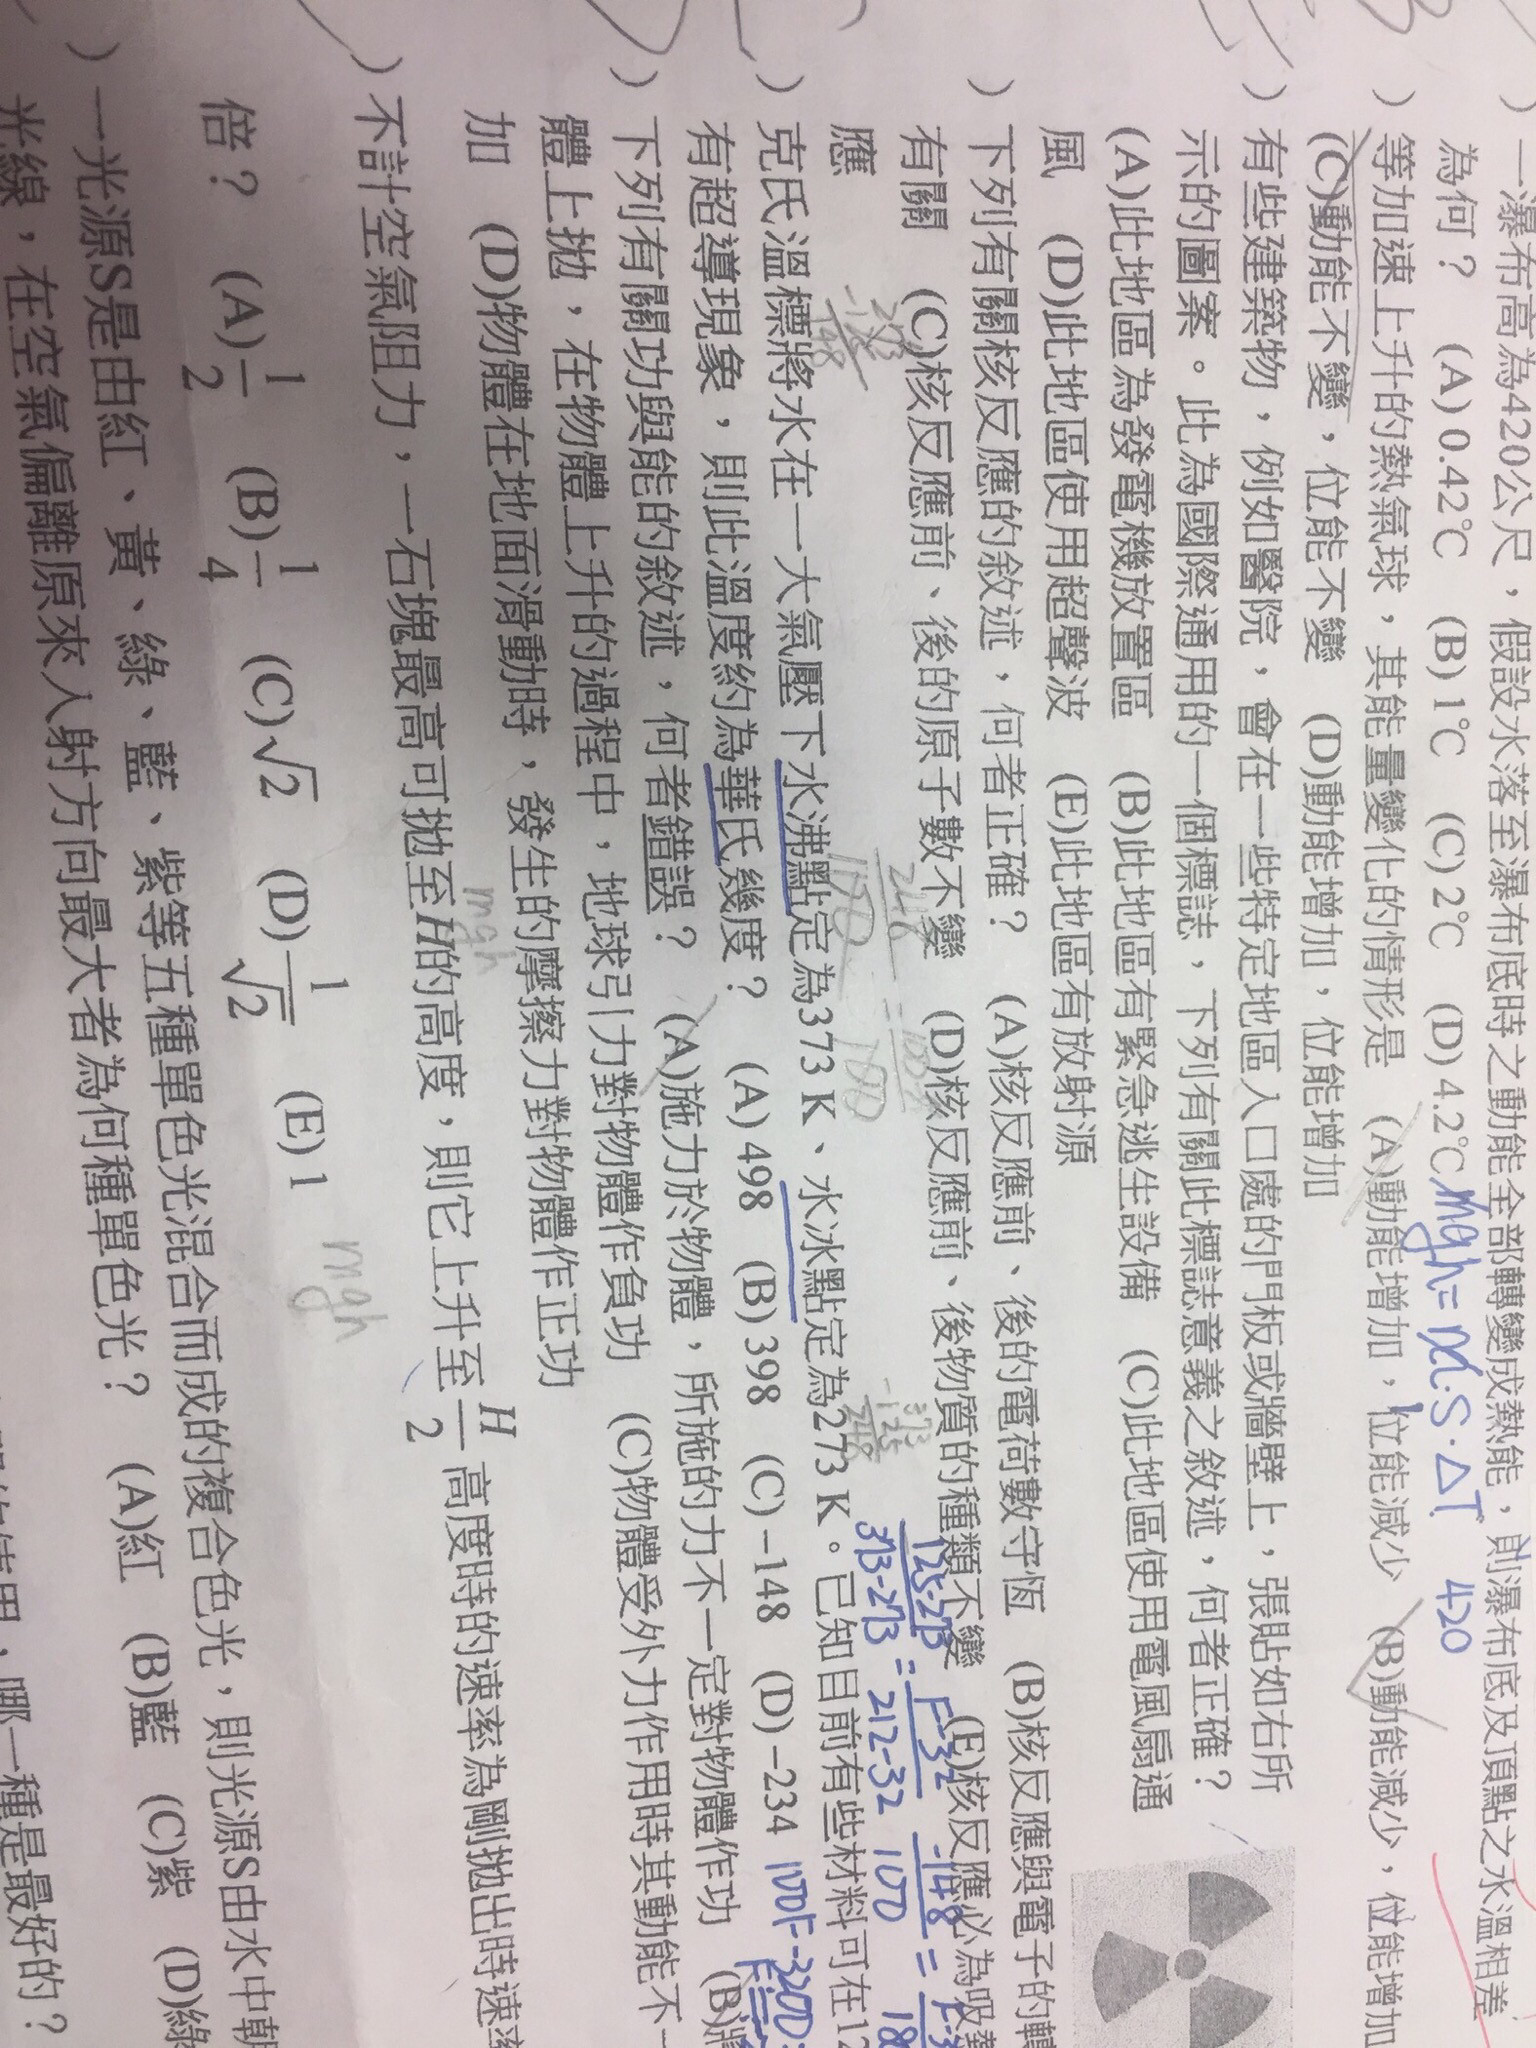 ）一瀑布高為420公尺，假設水落至瀑布底時之動能全部轉變成熱能，則瀑布底及頂點之水溫相差
為何？ (A) 0.42℃ (B) 1℃ (C) 2℃ (D) 4.2℃ mgh = m·S·ΔT 420
）等加速上升的熱氣球，其能量變化的情形是 (A)動能增加，位能減少 (B)動能減少，位能增加
(C)動能不變，位能不變 (D)動能增加，位能增加
）有些建築物，例如醫院，會在一些特定地區入口處的門板或牆壁上，張貼如右所
示的圖案。此為國際通用的一個標誌，下列有關此標誌意義之敘述，何者正確？
(A)此地區為發電機放置區 (B)此地區有緊急逃生設備 (C)此地區使用電風扇通
風 (D)此地區使用超聲波 (E)此地區有放射源
）下列有關核反應的敘述，何者正確？ (A)核反應前、後的電荷數守恆 (B)核反應與電子的轉
有關 (C)核反應前、後的原子數不變 (D)核反應前、後物質的種類不變 (E)核反應必為吸熱
應
273
-125
148
373
-125
248
125-273
373-273
=
F-32
212-32
-148
100
=
）克氏溫標將水在一大氣壓下水沸點定為373 K、水冰點定為273 K。已知目前有些材料可在12
有超導現象，則此溫度約為華氏幾度？ (A) 498 (B) 398 (C) -148 (D) -234
）下列有關功與能的敘述，何者錯誤？ (A)施力於物體，所施的力不一定對物體作功 (B)將
體上拋，在物體上升的過程中，地球引力對物體作負功 (C)物體受外力作用時其動能不一
加 (D)物體在地面滑動時，發生的摩擦力對物體作正功
mgh
）不計空氣阻力，一石塊最高可拋至H的高度，則它上升至H/2高度時的速率為剛拋出時速率
倍？ (A) 1/2 (B) 1/4 (C) √2 (D) 1/√2 (E) 1
mgh
）一光源S是由紅、黃、綠、藍、紫等五種單色光混合而成的複合色光，則光源S由水中朝
光線，在空氣偏離原來入射方向最大者為何種單色光？ (A)紅 (B)藍 (C)紫 (D)綠
，哪一種是最好的？